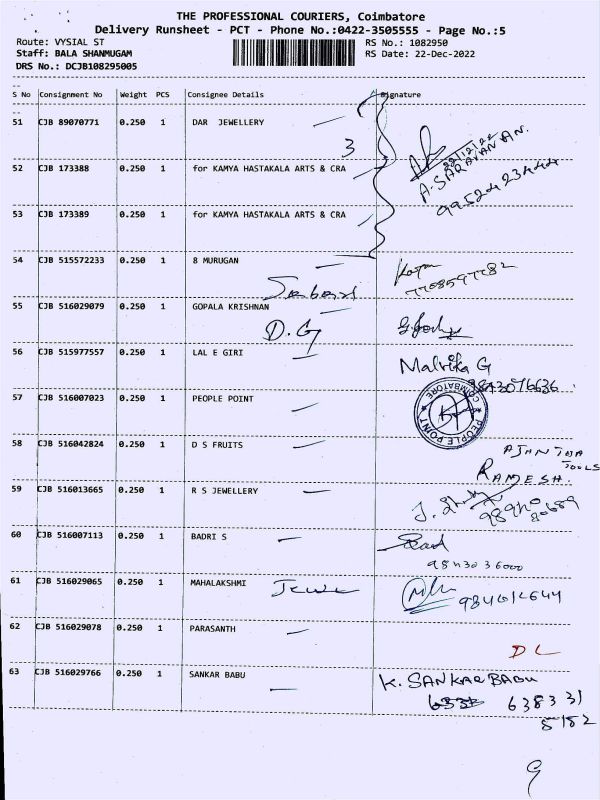 THE PROFESSIONAL COURIERS, Coimbatore
Delivery Runsheet - PCT - Phone No.:0422-3505555 - Page No.:5
Route: VYSIAL ST RS No.: 1082950
Staff: BALA SHANMUGAM RS Date: 22-Dec-2022
DRS No.: DCJB108295005
S No Consignment No Weight PCS Consignee Details Signature
51 CJB 89070771 0.250 1 DAR JEWELLERY
3
22/12/22
A. SARAVANAN.
9952423444
52 CJB 173388 0.250 1 for KAMYA HASTAKALA ARTS & CRA
53 CJB 173389 0.250 1 for KAMYA HASTAKALA ARTS & CRA
54 CJB 515572233 0.250 1 B MURUGAN
55 CJB 516029079 0.250 1 GOPALA KRISHNAN
D. G
56 CJB 515977557 0.250 1 LAL E GIRI
Malvika G
57 CJB 516007023 0.250 1 PEOPLE POINT
PEOPLE POINT COIMBATORE
58 CJB 516042824 0.250 1 D S FRUITS
AJANTHA TOOLS
RAMESH.
59 CJB 516013665 0.250 1 R S JEWELLERY
60 CJB 516007113 0.250 1 BADRI S
9843036000
61 CJB 516029065 0.250 1 MAHALAKSHMI
62 CJB 516029078 0.250 1 PARASANTH
DL
63 CJB 516029766 0.250 1 SANKAR BABU
K. SANKAR BABU
638331
5152
9